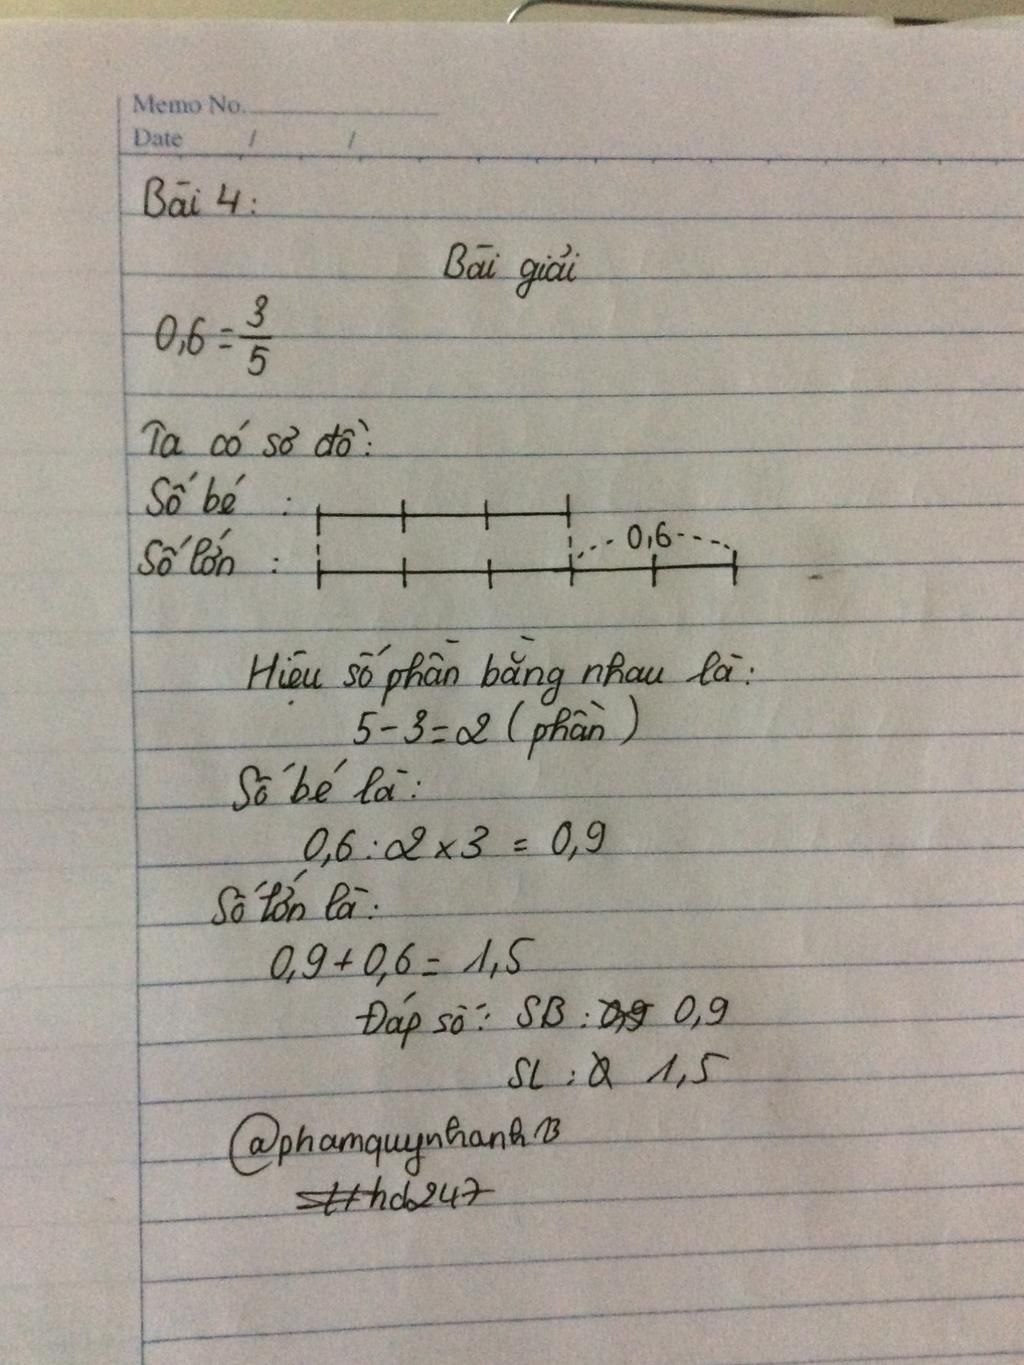 Memo No.
Date / /
Bài 4:
Bài giải
0,6 = 3/5
Ta có sơ đồ:
Số bé :
0,6
Số lớn :
Hiệu số phần bằng nhau là:
5 - 3 = 2 ( phần )
Số bé là:
0,6 : 2 x 3 = 0,9
Số lớn là:
0,9 + 0,6 = 1,5
Đáp số: SB : 0,9 0,9
SL : 1,5
@phamquynhanh13